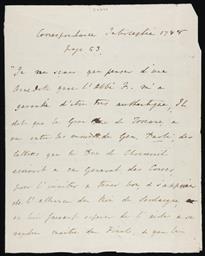 Correspondance Interceptée 1788
Page 53.
"Je ne sais que penser d'une
anecdote que l'Abbé F. m'a
garantie d'être très authentique. Il
dit que le Grand Duc de Toscane, a
eu entre les mains de Gen. Paoli, des
lettres que le Duc de Choiseuil
écrivait à ce General des Corses,
pour l'inviter à tenir bon & s'assurer
de l'alliance du Roi de Sardaigne, en
lui faisant espérer de l'aider à se
rendre maître du Finale, & que les